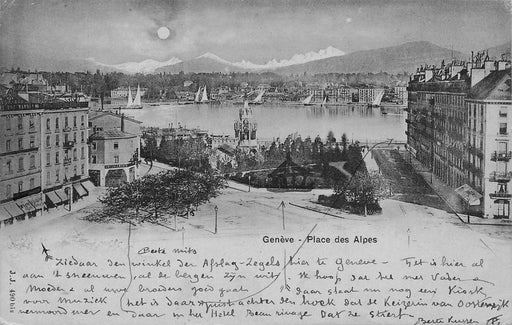 Genève - Place des Alpes
J.J. 490 bis
Beste mits
Ziedaar den winkel der Afslag-Zegels hier te Genève - Het is hier al
aan 't sneeuwen al de bergen zijn wit. Ik hoop dat het met Vader en
Moeder & al uwe broeders goed gaat daar staat nu nog een Kiosk
voor Muziek het is daar juist achter den hoek dat de Keizerin van Oostenrijk
vermoord werd en daar in het Hotel Beau rivage dat ze stierf
Beste Kussen